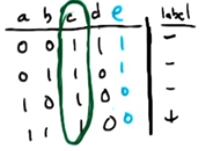 a b c d e label
0 0 1 1 1 –
0 1 1 0 1 –
1 0 1 0 0 –
1 1 1 0 0